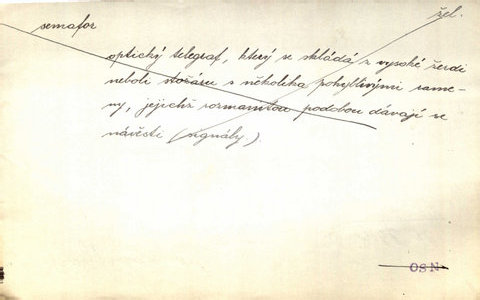 semafor žel.
optický telegraf, který se skládá z vysoké žerdi
neboli stožáru s několika pohyblivými rame-
ny, jejichž rozmanitou podobou dávají se
návěsti (signály).
OSN